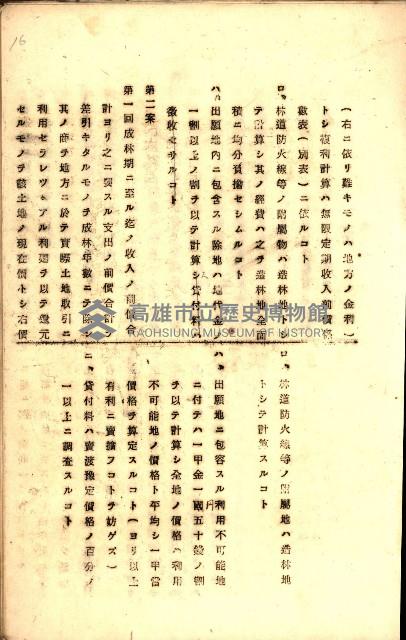 16
(右ニ依リ難キモノハ地方ノ金利ヲ
トシ複利計算ハ無限定期收入前價格
數表(別表)ニ依ルコト
ロ、林道防火線等ノ附屬物ハ造林地トシ
テ計算シ其ノ經費ハ之ヲ造林地全面
積ニ均分負擔セシムルコト
ハ、出願地內ニ包含スル除地ハ地代金ノ
一割以上ノ割ヲ以テ計算シ貸付料ハ
徵收セサルコト
第二案
第一回成林期ニ至ル迄ノ收入ノ前價合
計ヨリ之ニ要スル支出ノ前價合計ヲ
差引キタルモノヲ成林年數ニテ除シ
其ノ商ヲ地方ニ於テ實際土地取引ニ
利用セラレツヽアル利廻ヲ以テ還元
セルモノヲ該土地ノ現在價トシ右價
ロ、林道防火線等ノ附屬地ハ造林地
トシテ計算スルコト
ハ、出願地ニ包容スル利用不可能地
ニ付テハ一甲金一圓五十錢ノ割
ヲ以テ計算シ全地ノ價格ハ利用
不可能地ノ價格ト平均シ一甲當
價格ヲ算定スルコト(ヨリ以上
有利ニ賣擔フコトヲ妨ゲズ)
ニ、貸付料ハ賣渡豫定價格ノ百分ノ
一以上ニ調査スルコト
高雄市立歷史博物館
KAOHSIUNG MUSEUM OF HISTORY